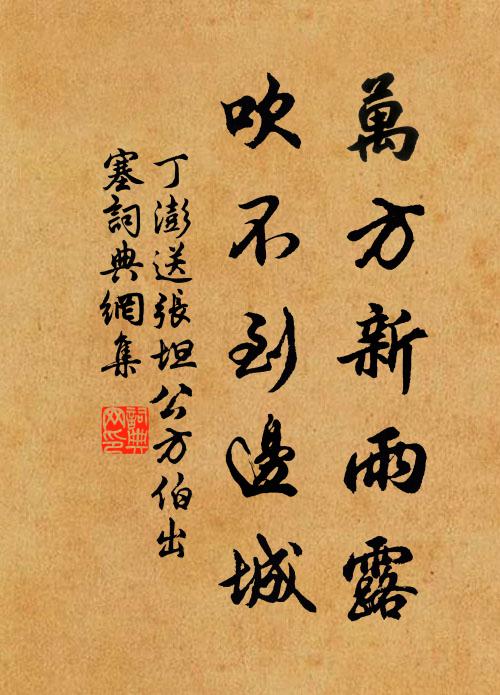 萬方新雨露
吹不到邊城
丁澎送張坦公方伯出
塞詞典網集
詞典
网印